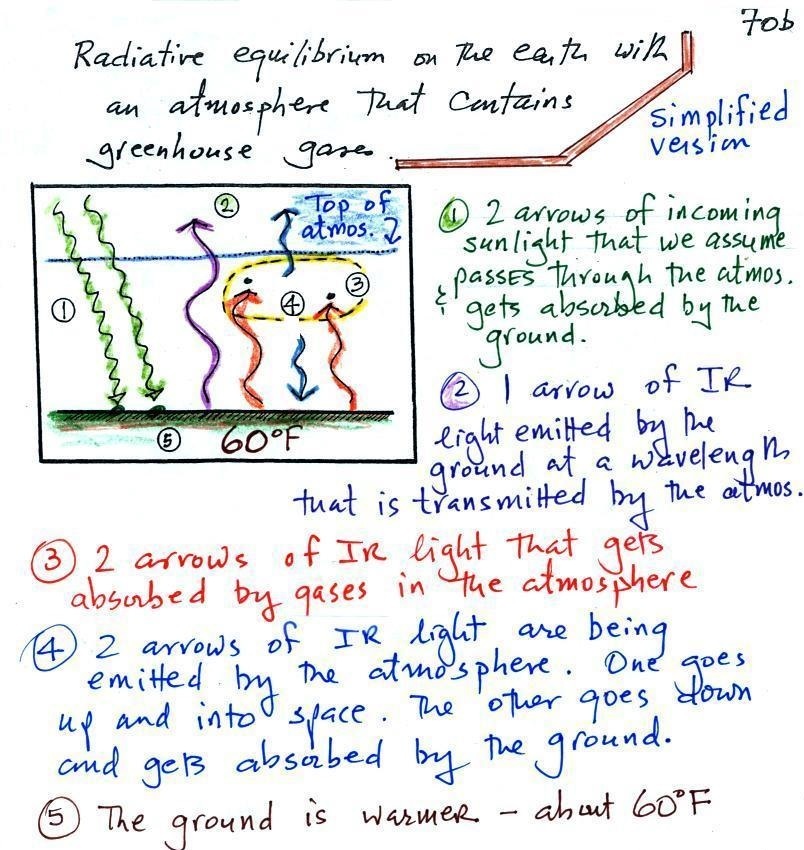 70b
Radiative equilibrium on the earth with
an atmosphere that contains
greenhouse gases.
simplified
version
②
Top of
atmos.
①
③
④
⑤
60°F
① 2 arrows of incoming
sunlight that we assume
passes through the atmos.
& gets absorbed by the
ground.
② 1 arrow of IR
light emitted by the
ground at a wavelength
that is transmitted by the atmos.
③ 2 arrows of IR light that gets
absorbed by gases in the atmosphere
④ 2 arrows of IR light are being
emitted by the atmosphere. One goes
up and into space. The other goes down
and gets absorbed by the ground.
⑤ The ground is warmer - about 60°F